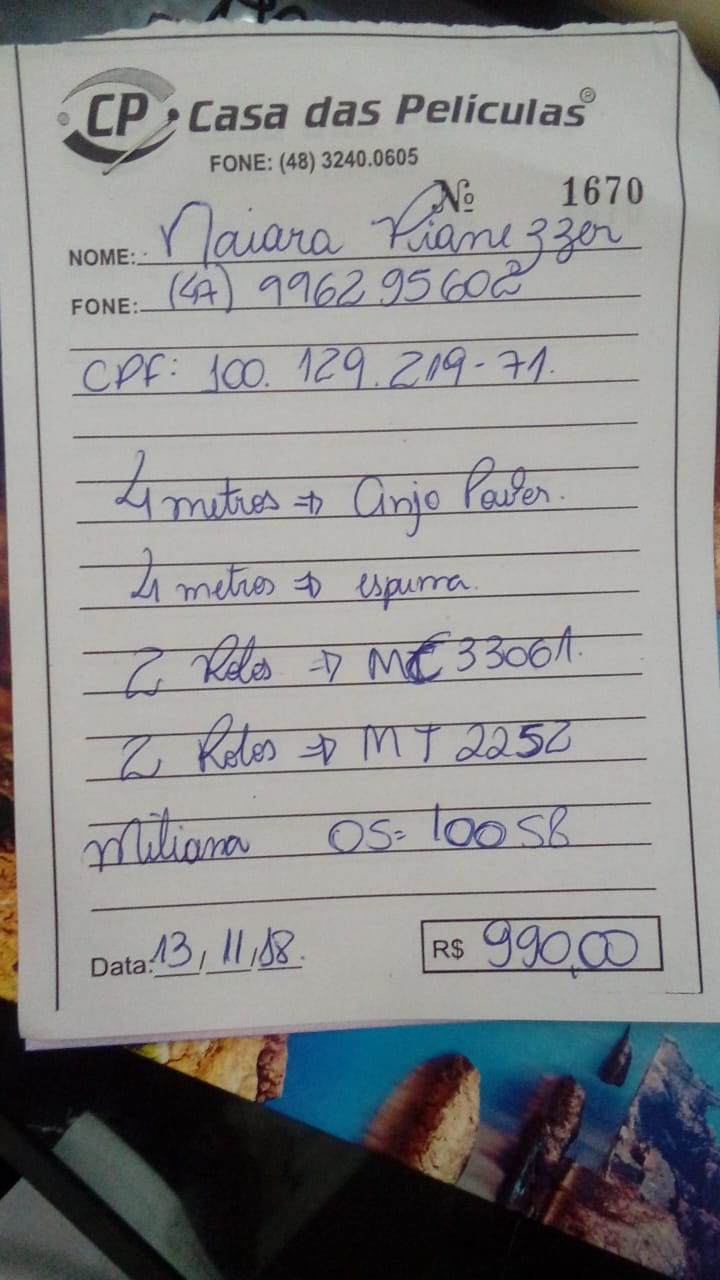 CP Casa das Películas®
FONE: (48) 3240.0605
Nº 1670
NOME: Naiara Vianezzer
FONE: (47) 996295602
CPF: 100.129.219-71.
4 metros => Anjo
4 metros => espuma.
2 Rolos => 33061.
2 Rolos => MT 2252
Miliana OS= 10058
Data: 13/11/18.
R$ 990,00